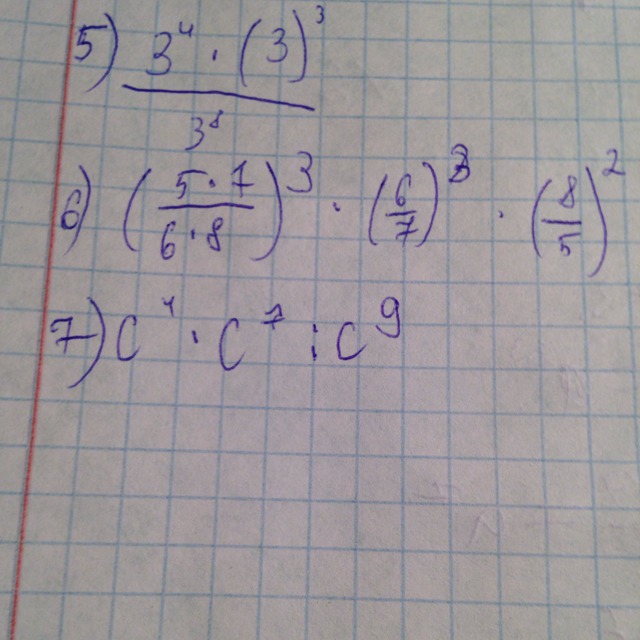 5) (3⁴ · (3)³) / 3⁸
6) ((5·7)/(6·8))³ · (6/7)³ · (8/5)²
7) c⁴ · c⁷ : c⁹